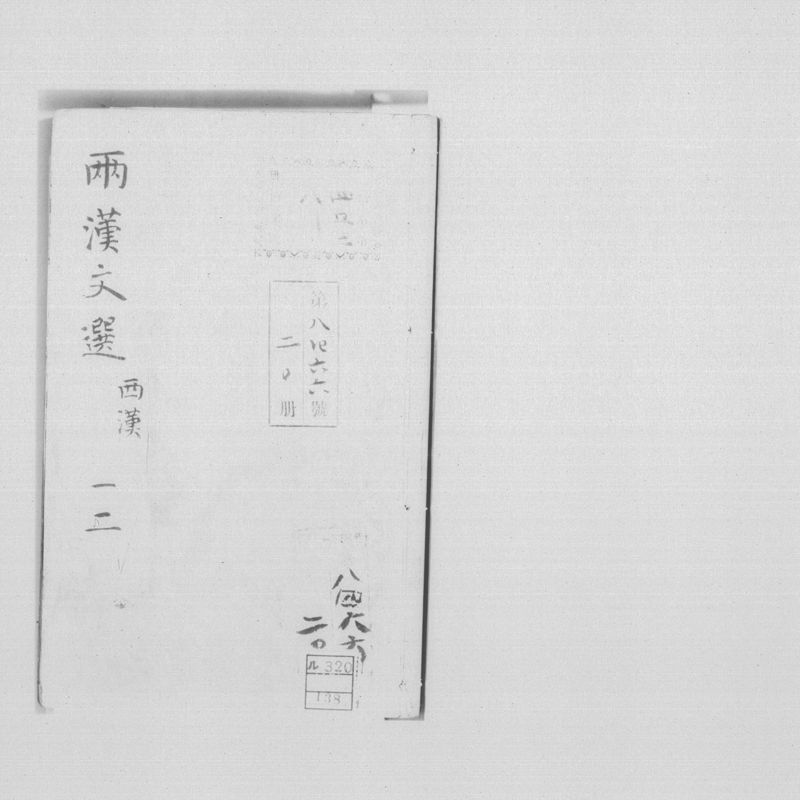 兩漢文選
西漢
一二
第八四六六號
二〇册
八四六六
二〇
ル 320
138